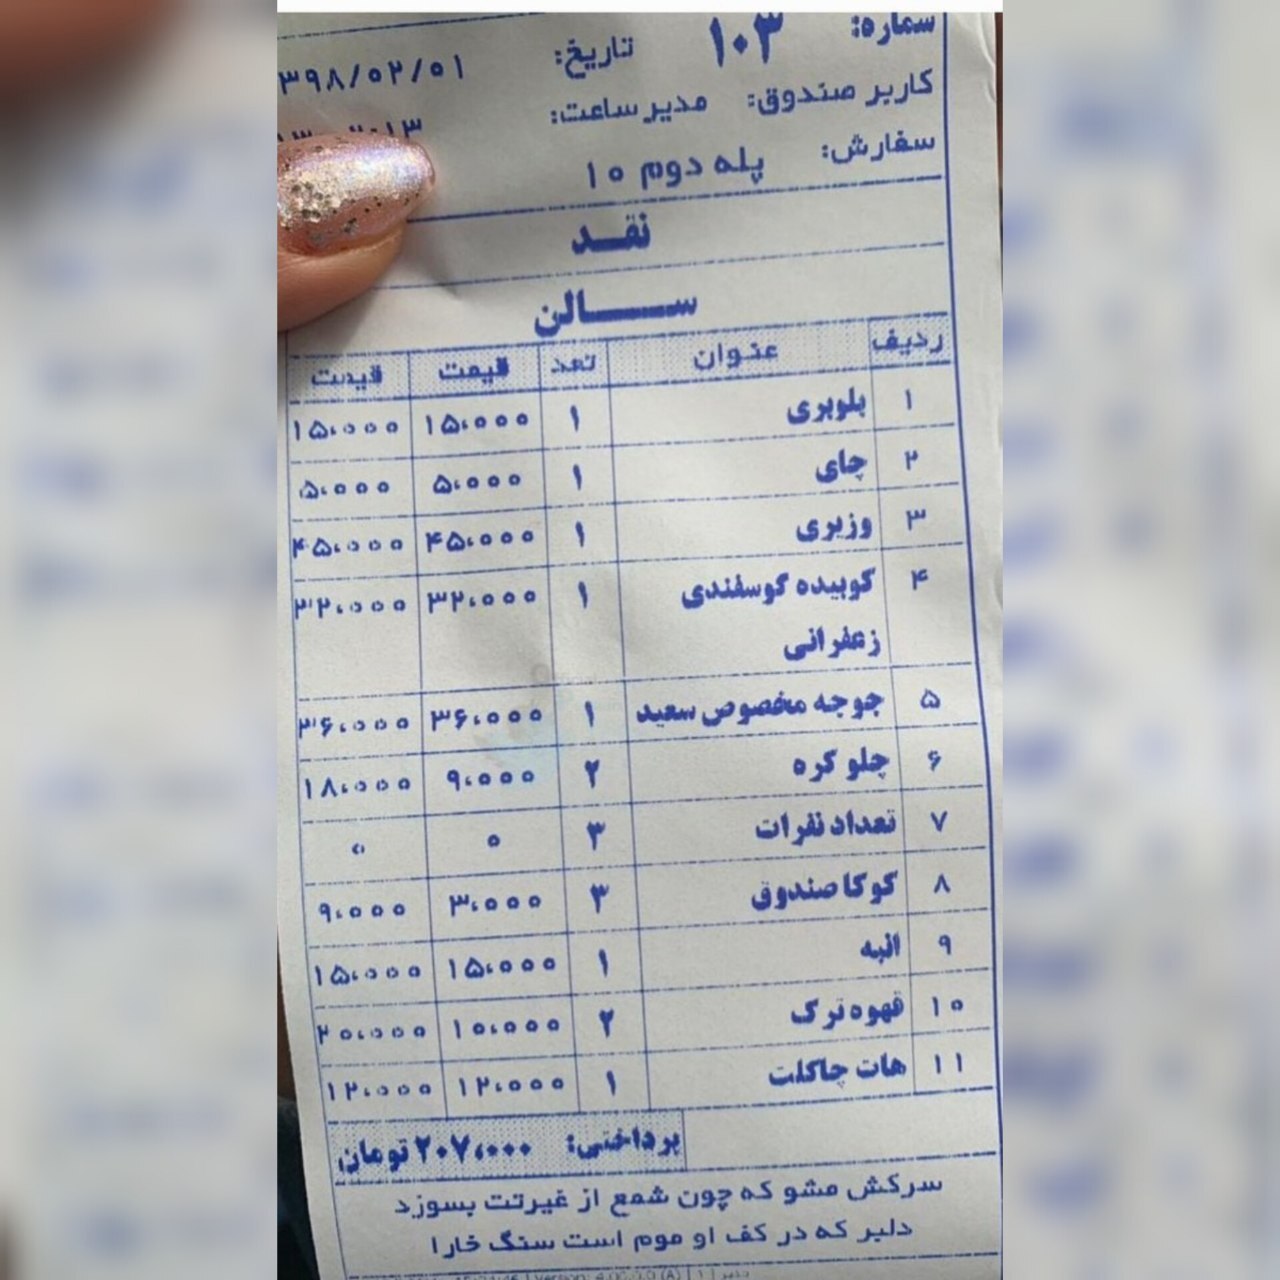 شماره: ۱۰۳ تاریخ: ۳۹۸/۰۲/۰۱
کاربر صندوق: مدیر ساعت:
سفارش: پله دوم ۱۰
نقــد
ســـــالن
ردیف عنوان تعد قیمت قیمت
۱ بلوبری ۱ ۱۵،۰۰۰ ۱۵،۰۰۰
۲ چای ۱ ۵،۰۰۰ ۵،۰۰۰
۳ وزیری ۱ ۴۵،۰۰۰ ۴۵،۰۰۰
۴ کوبیده گوسفندی ۱ ۳۲،۰۰۰ ۳۲،۰۰۰
زعفرانی
۵ جوجه مخصوص سعید ۱ ۳۶،۰۰۰ ۳۶،۰۰۰
۶ چلو کره ۲ ۹،۰۰۰ ۱۸،۰۰۰
۷ تعداد نفرات ۳ ۰ ۰
۸ کوکا صندوق ۳ ۳،۰۰۰ ۹،۰۰۰
۹ انبه ۱ ۱۵،۰۰۰ ۱۵،۰۰۰
۱۰ قهوه ترک ۲ ۱۰،۰۰۰ ۲۰،۰۰۰
۱۱ هات چاکلت ۱ ۱۲،۰۰۰ ۱۲،۰۰۰
پرداختی: ۲۰۷،۰۰۰ تومان
سرکش مشو که چون شمع از غیرتت بسوزد
دلبر که در کف او موم است سنگ خارا